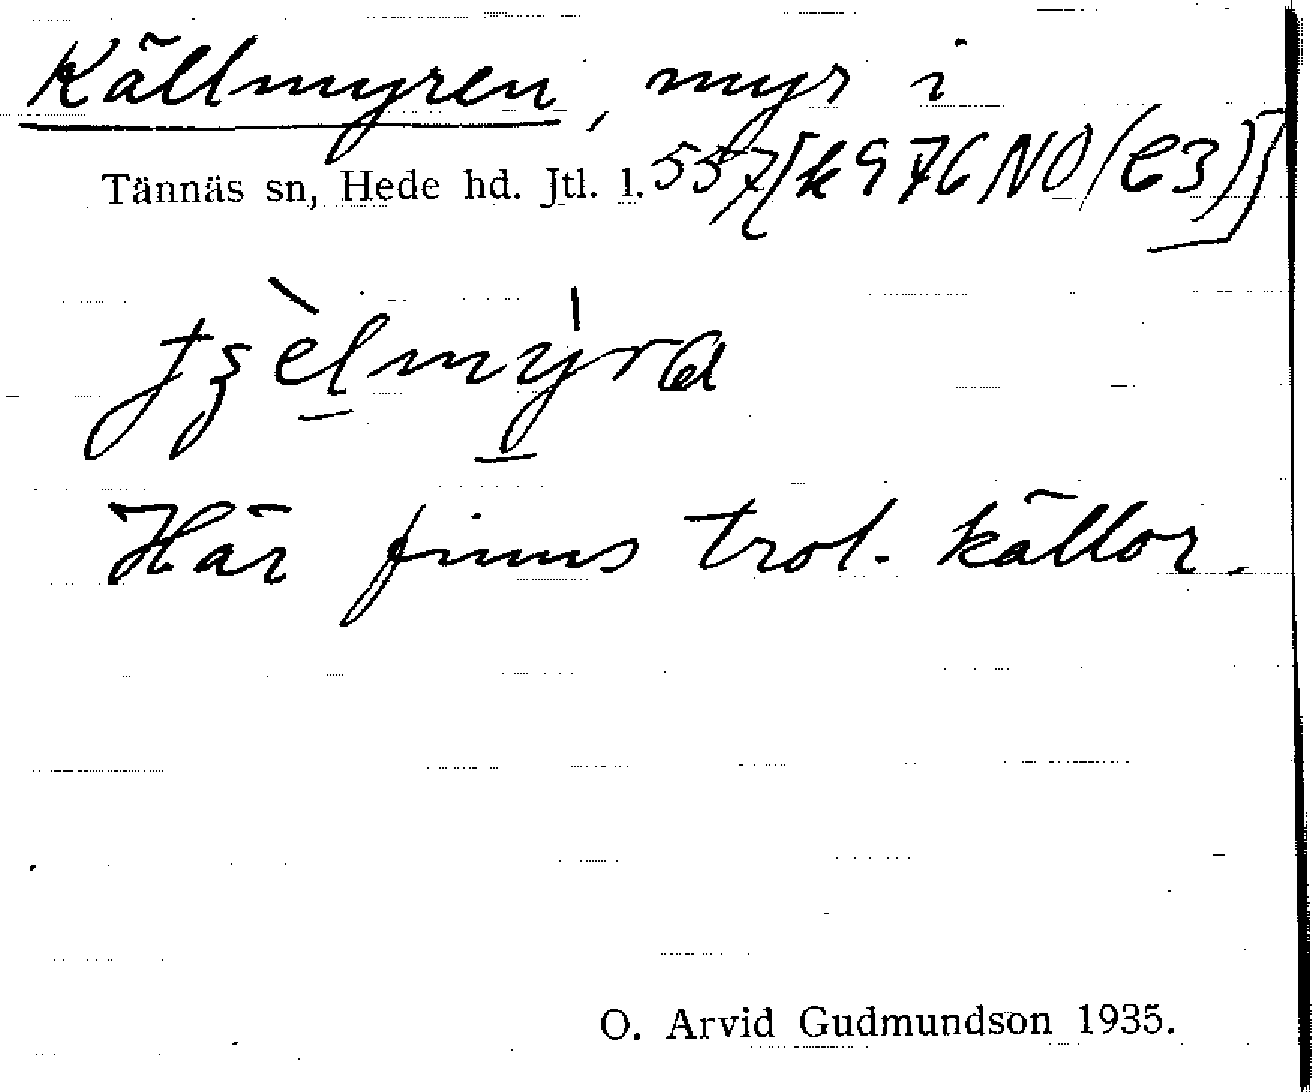 Källmyren, myr i
Tännäs sn, Hede hd. Jtl. l. 557[k976NO(C3)]
tʒèlmýra
Här finns trol. källor.
O. Arvid Gudmundson 1935.